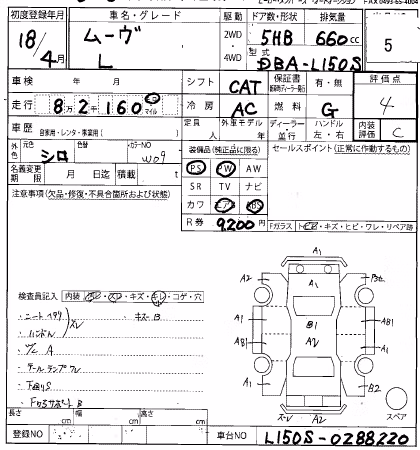 初度登録年月 車名・グレード 駆動 ドア数・形状 排気量
18/4月 ムーヴ L 2WD・4WD 5HB 660cc 5
型式 DBA-L150S
車検 年 月 シフト CAT 保証書 有・無 評価点 4
走行 8万2千160 マイル 冷房 AC 燃料 G
車歴 自家用・レンタ・事業用( ) 定員 人 外車モデル 年 ディーラー 並行 ハンドル 左・右 内装評価 C
外色 元色 シロ 色替 カラーNO W09
装備品(純正品に限る) セールスポイント(正常に作動するもの)
PS PW AW
名義変更期限 月 日迄 積載 t SR TV ナビ
注意事項(欠品・修復・不具合箇所および状態) カワ エアB ABS
R券 9,200円 Fガラス トビ・キズ・ヒビ・ワレ・リペア跡
A1
A2 A1
B1
AB1 A2 AB1
A1 A1
A1 B2
ズレ A2 スペア
検査員記入 内装 キズ・コゲ・穴
・ハンドル スレ ・キズB
A
・テールランプワレ
・下廻りS
B
長さ cm 幅 cm 高さ cm
登録NO 車台NO L150S-0288220